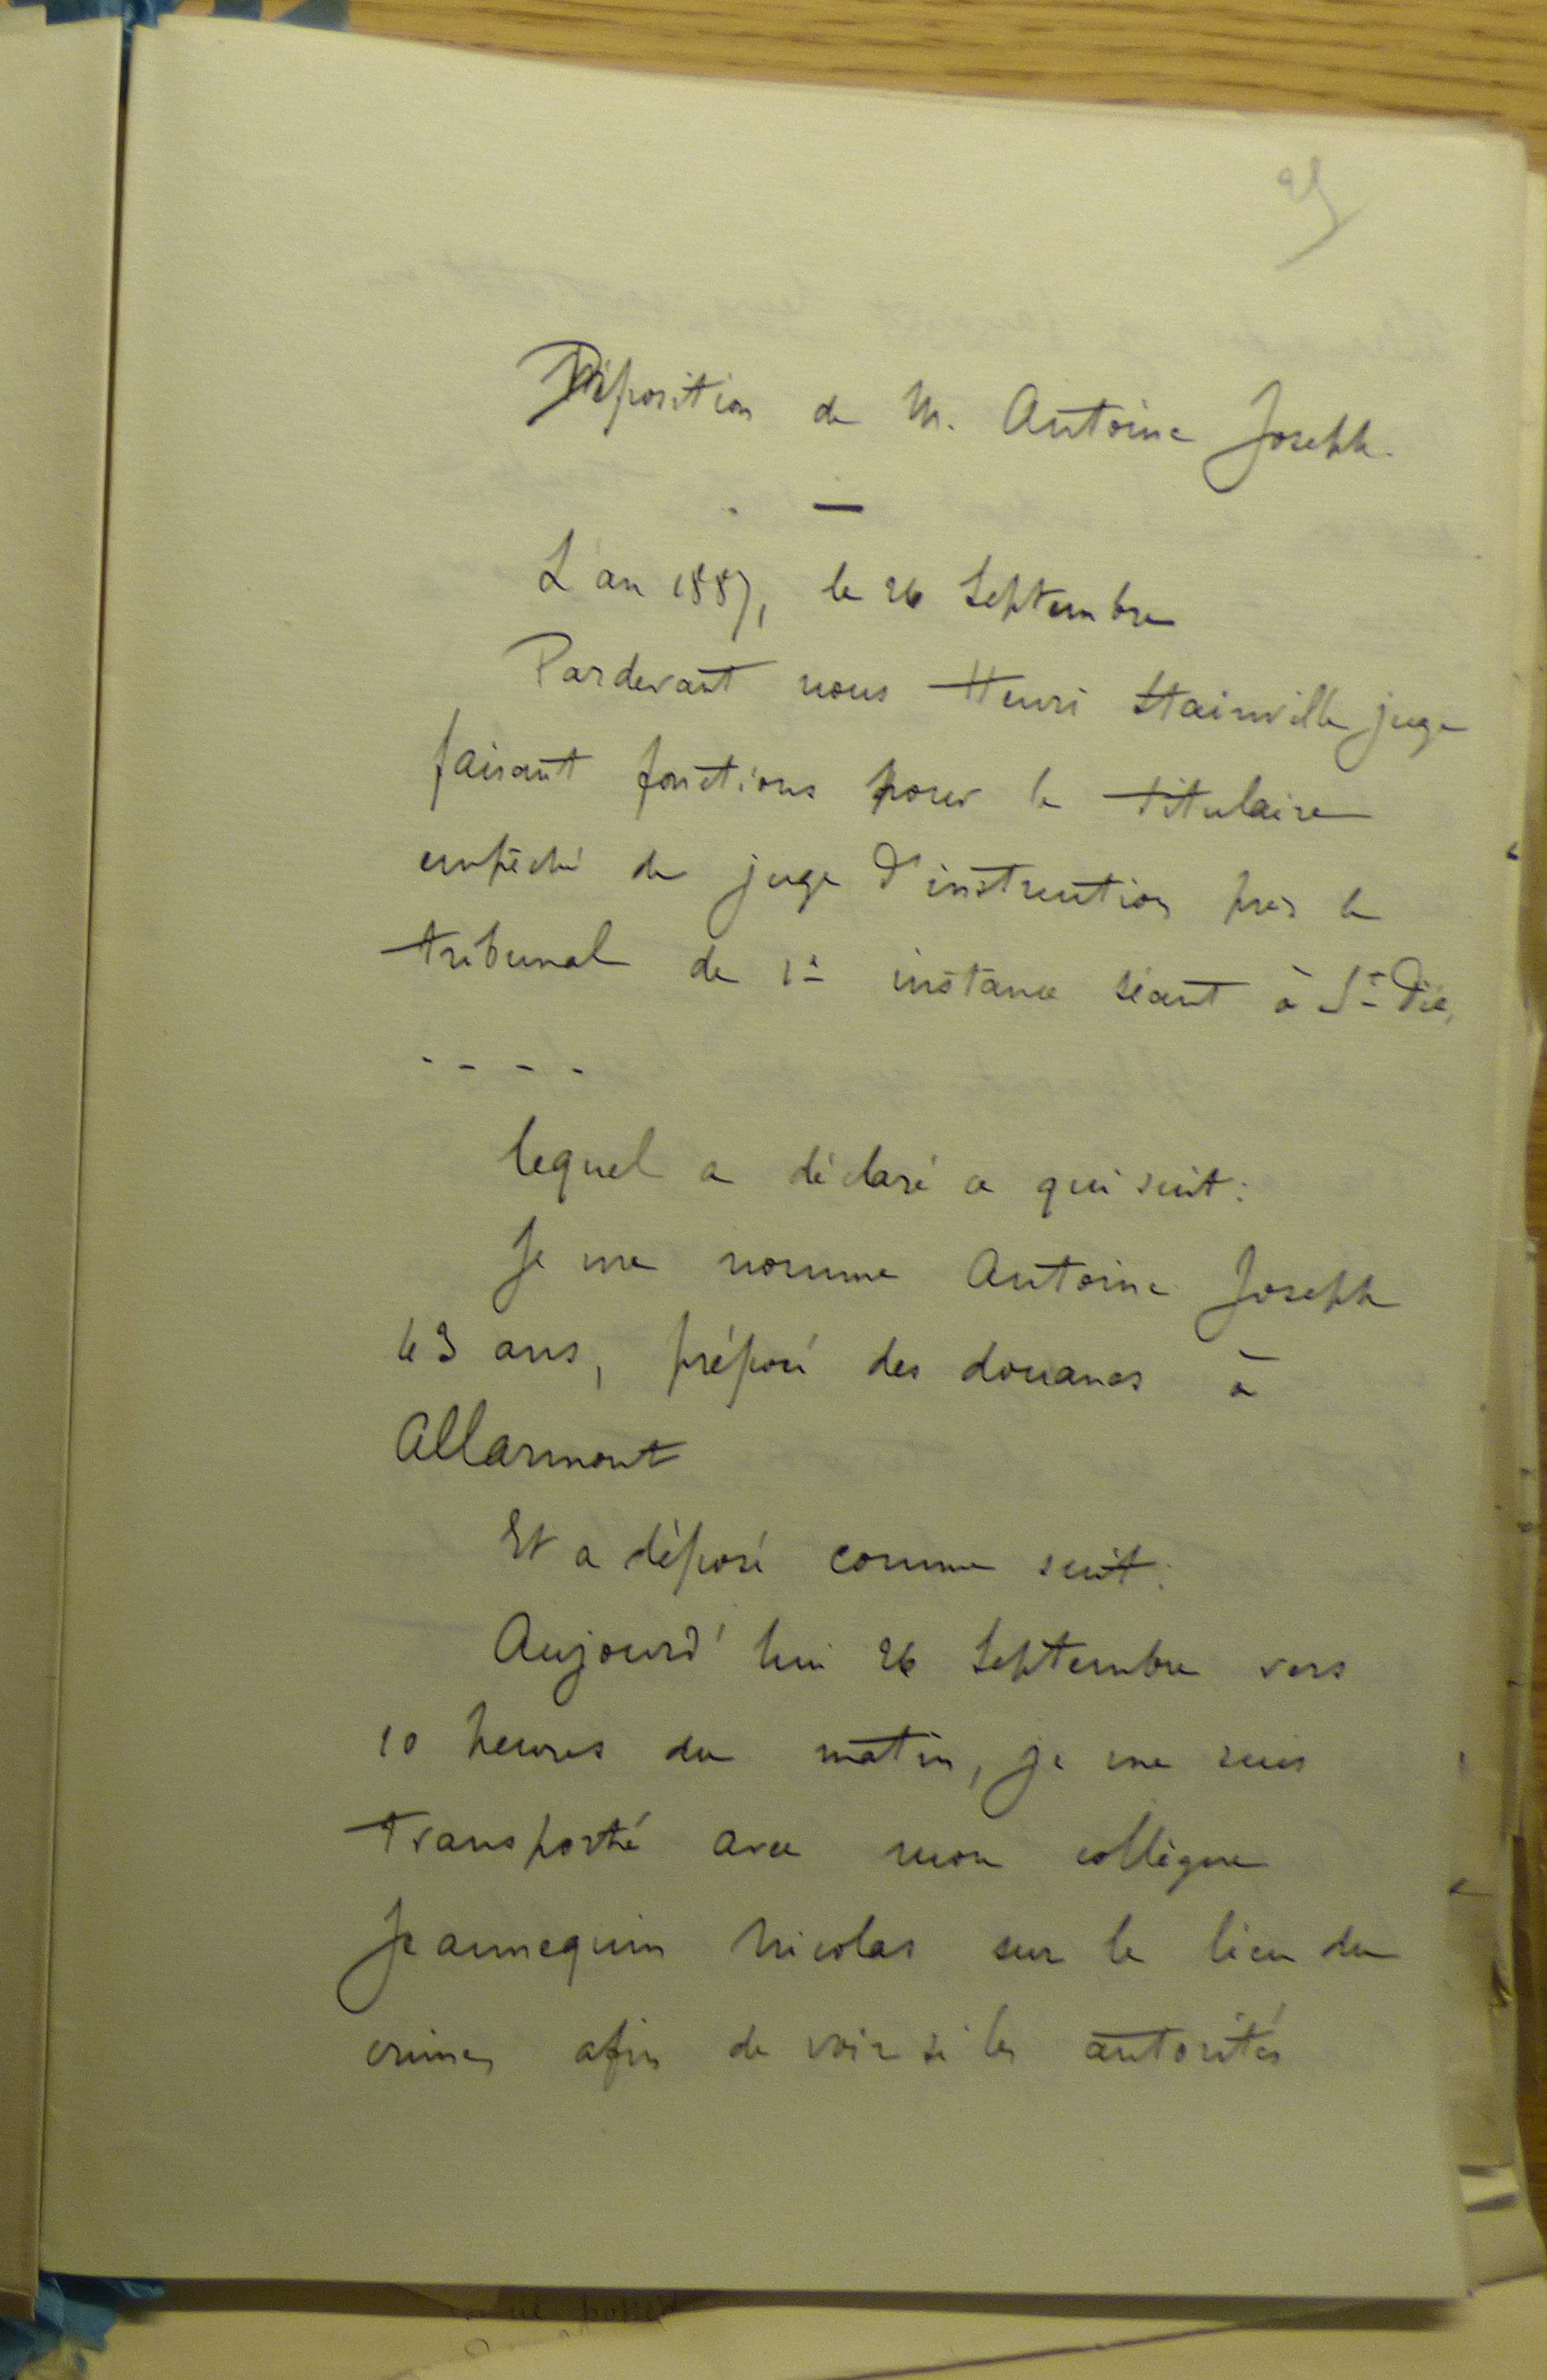 25
Déposition de M. Antoine Joseph.
—
L'an 1887, le 26 Septembre
Pardevant nous Henri Stainville juge
faisant fonctions pour le titulaire
empêché de juge d'instruction près le
tribunal de 1è instance séant à St Dié,
- - - -
lequel a déclaré ce qui suit :
Je me nomme Antoine Joseph
43 ans, préposé des douanes à
Allarmont
Et a déposé comme suit :
Aujourd'hui 26 Septembre vers
10 heures du matin, je me suis
transporté avec mon collègue
Jeannequin Nicolas sur le lieu du
crime, afin de voir si les autorités